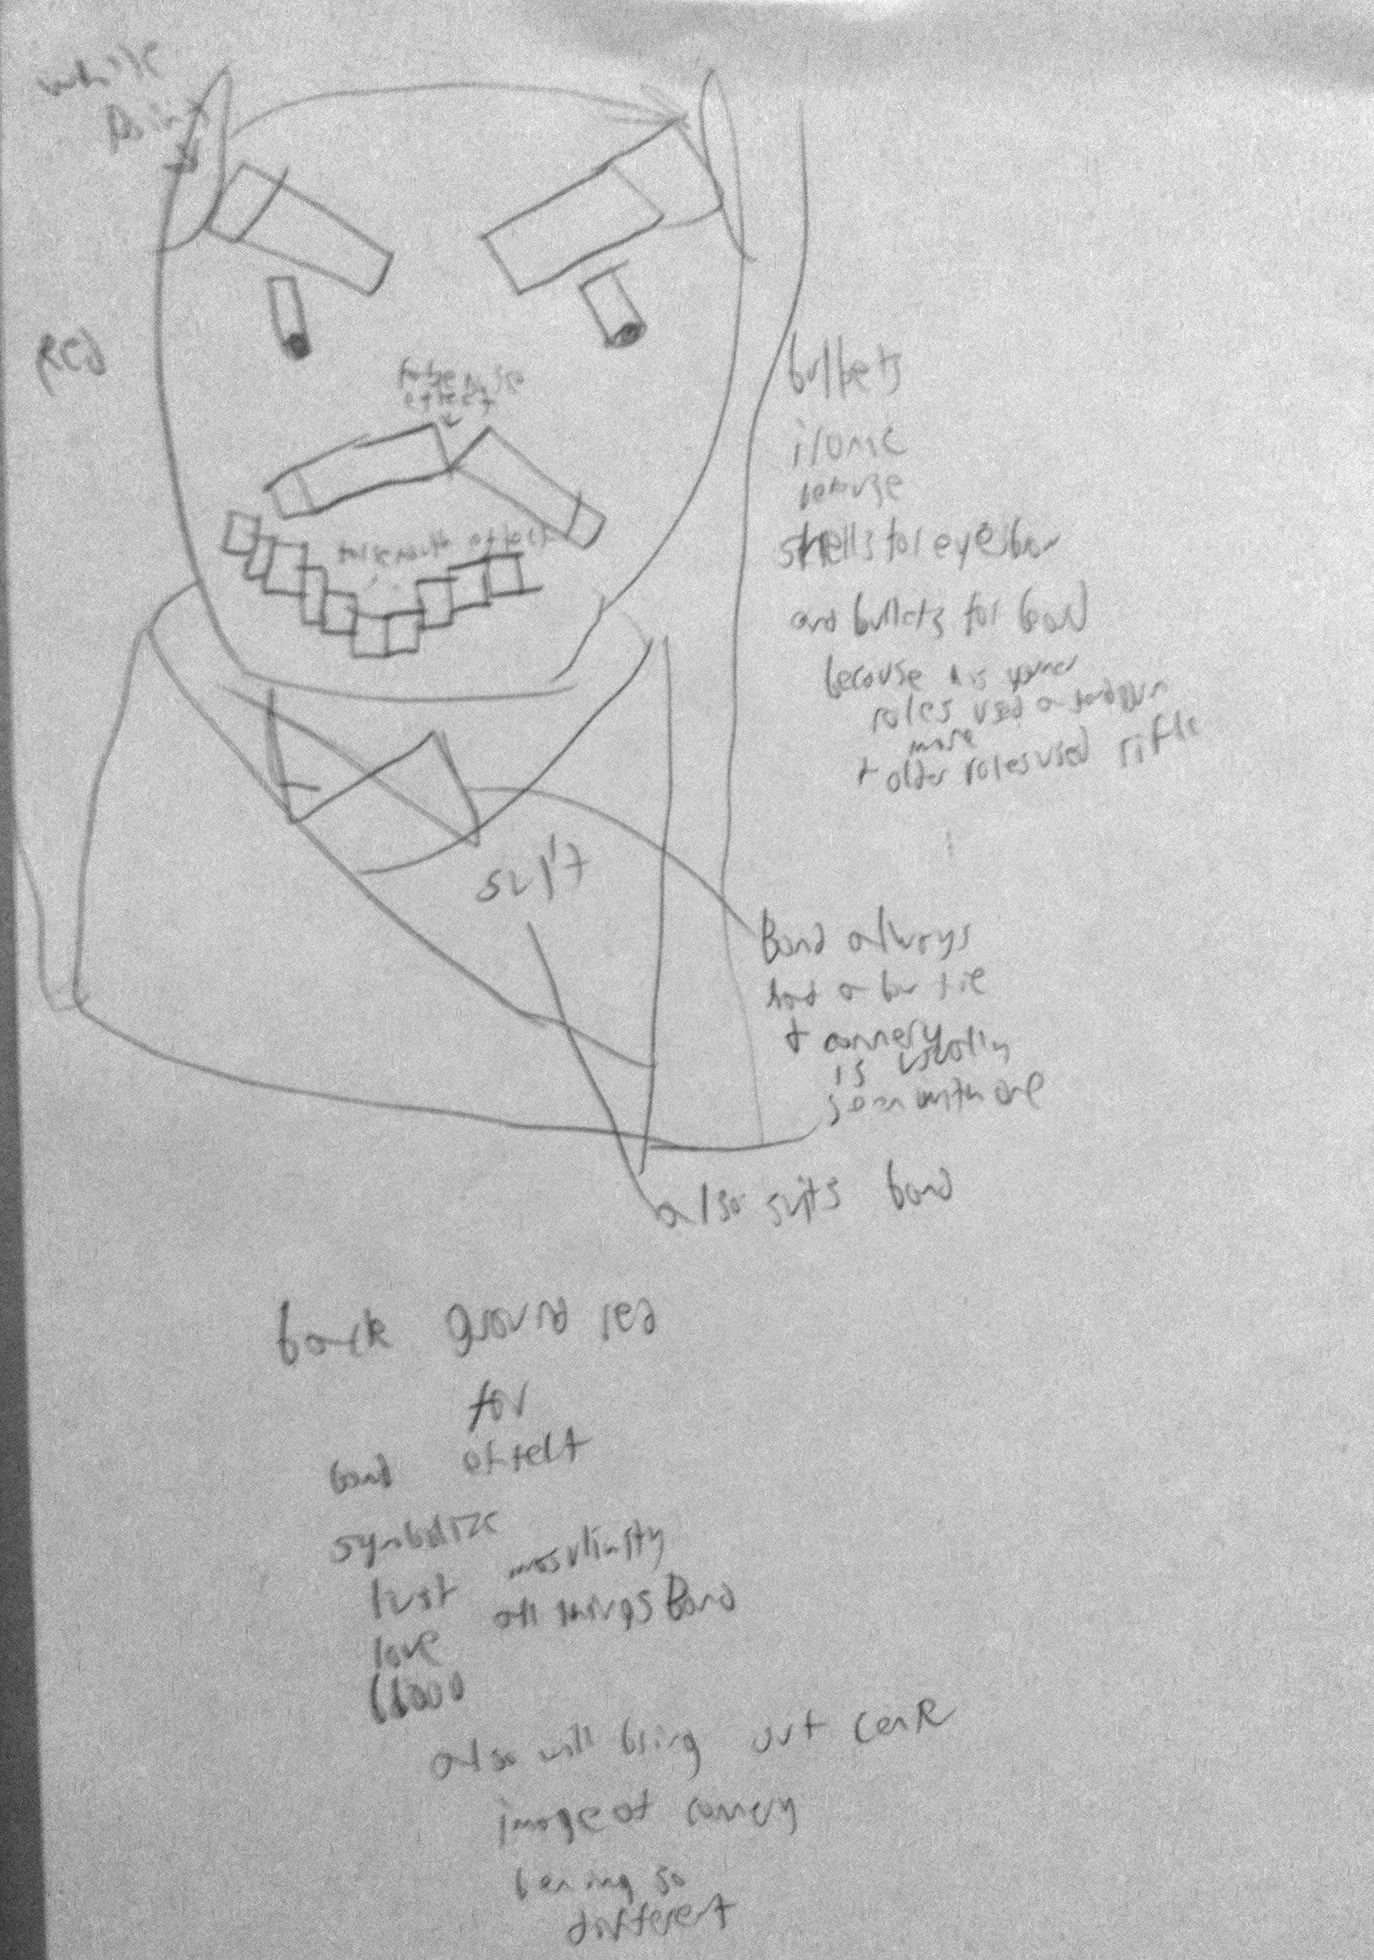 white
paint
Red
false nose
effect
false mouth effect
bullets
ironic
because
shells for eyebrow
and bullets for beard
because his younger
roles used a handgun
more
+ older roles used rifle
suit
Bond always
had a bow tie
+ connery
is usually
seen with one
also suits bond
back ground red
for
bond effect
symbolize
lust masulinity
love all things Bond
blood
also will bring out
image of connery
being so
different